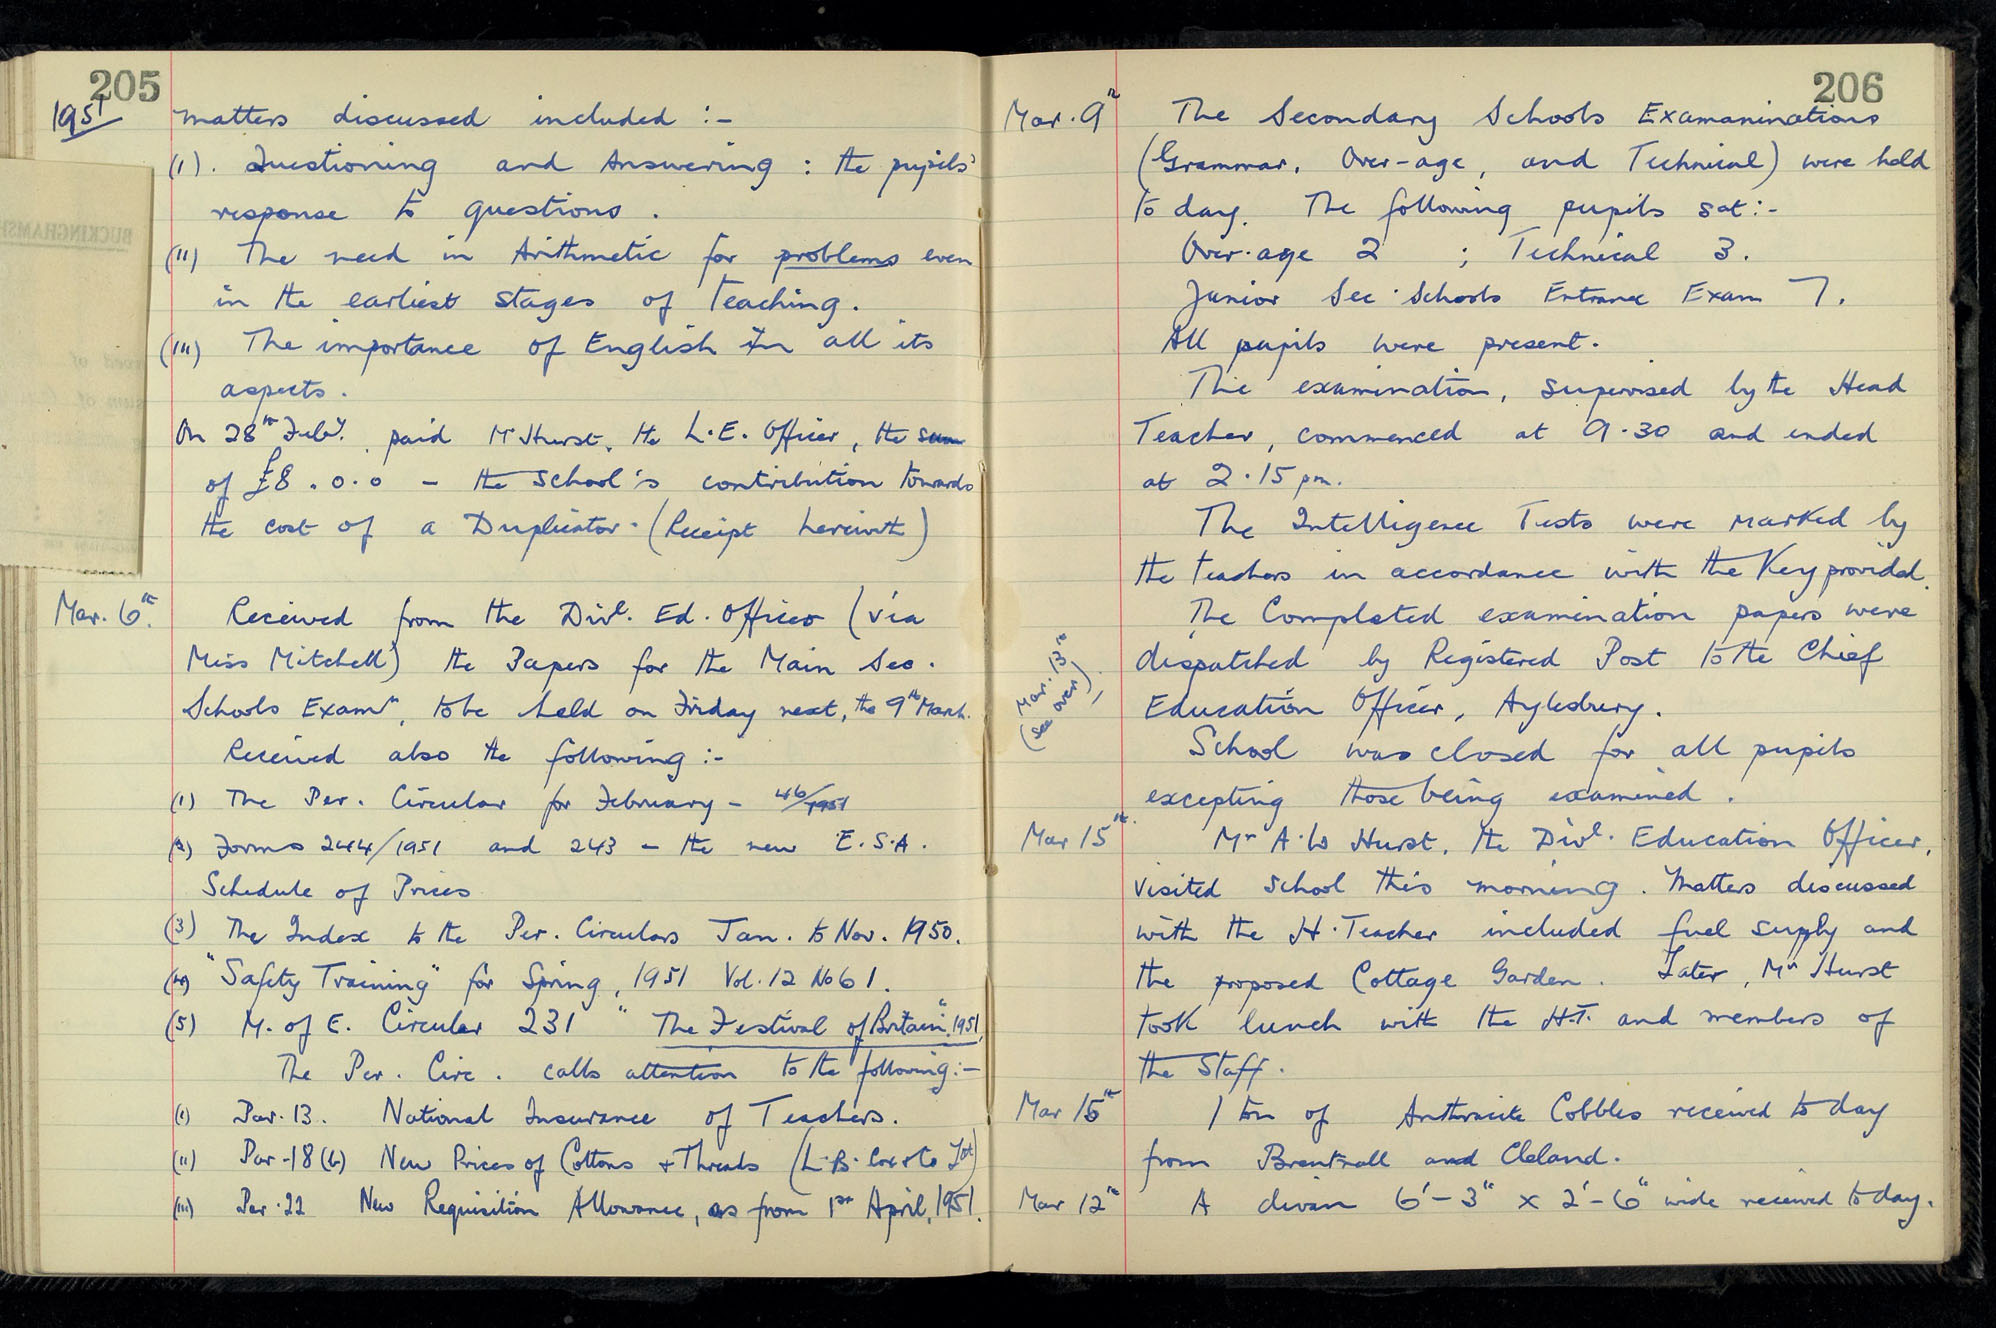 205
1951
matters discussed included :-
(i). Questioning and Answering : the pupils'
response to questions .
(ii) The need in Arithmetic for problems even
in the earliest stages of Teaching.
(iii) The importance of English in all its
aspects.
On 28th Feby. paid Mr Hurst, the L.E. Officer, the sum
of £8.0.0 - the school's contribution towards
the cost of a Duplicator. (Receipt herewith)
Mar. 6th. Received from the Divl. Ed. Officer (via
Miss Mitchell) the Papers for the Main Sec.
Schools Examn, to be held on Friday next, the 9th March.
Received also the following :-
(1) The Per. Circular for February - 46/1951
(2) Forms 244/1951 and 243 - the new E.S.A.
Schedule of Prices
(3) The Index to the Per. Circulars Jan. to Nov. 1950.
(4) "Safety Training" for Spring, 1951 Vol. 12 No 61.
(5) M. of E. Circular 231 "The Festival of Britain", 1951.
The Per. Circ. calls attention to the following :-
(i) Par. 13. National Insurance of Teachers.
(ii) Par-18(b) New Prices of Cottons & Threads (L.B. & Co Ltd)
(iii) Par. 22 New Requisition Allowance, as from 1st April, 1951.
BUCKINGHAMSH
206
Mar. 9th The Secondary Schools Examaninations
(Grammar, Over-age, and Technical) were held
to day. The following pupils sat :-
Over-age 2 ; Technical 3.
Junior Sec. Schools Entrance Exam 7.
All pupils were present.
The examination, supervised by the Head
Teacher, commenced at 9.30 and ended
at 2.15 pm.
The Intelligence Tests were marked by
the teachers in accordance with the Key provided.
The Completed examination papers were
dispatched by Registered Post to the Chief
Education Officer, Aylesbury.
Mar. 13th
(see over)
School was closed for all pupils
excepting those being examined.
Mar 15th. Mr A. W Hurst, the Divl. Education Officer,
visited school this morning. Matters discussed
with the H. Teacher included fuel supply and
the proposed Cottage Garden. Later, Mr Hurst
took lunch with the H.T. and members of
the Staff.
Mar 15th 1 ton of Anthracite Cobbles received to day
from Brentnall and Cleland.
Mar 12th A divan 6'-3" x 2'-6" wide received to day.